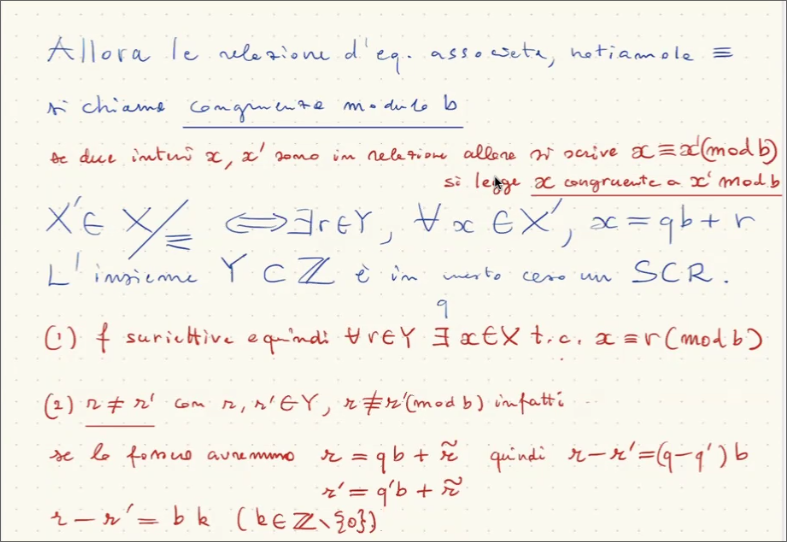 Allora la relazione d'eq. associata, notiamola ≡
si chiama congruenza modulo b
se due interi x, x' sono in relazione allora si scrive x ≡ x'(mod b)
si legge x congruente a x' mod b
X' ∈ X/≡ ⟺ ∃ r ∈ Y, ∀ x ∈ X', x = qb + r
L'insieme Y ⊂ ℤ è in questo caso un SCR.
(1) f suriettiva e quindi ∀ r ∈ Y ∃ x ∈ X t.c. x ≡ r (mod b)
(2) r ≠ r' con r, r' ∈ Y, r ≢ r' (mod b) infatti
se lo fossero avremmo r = qb + r̃ quindi r - r' = (q - q') b
r' = q'b + r̃
r - r' = b k (k ∈ ℤ \ {0})